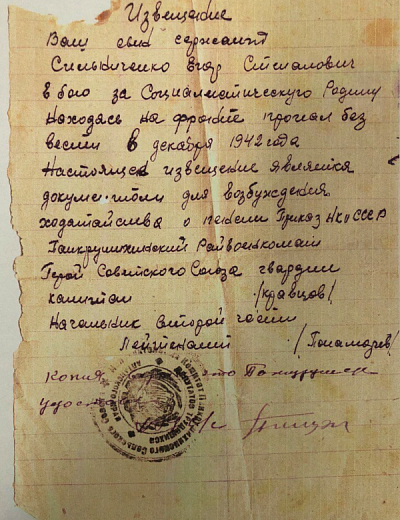 Извещение
Ваш сын сержант
Синьниченко Егор
в бою за Социалистическую Родину
находясь на фронте пропал без
вести в декабря 1942 года
Настоящее извещение является
документом для возбуждения
ходатайства о пенсии Приказ НКО СССР
Панкрушихинский Райвоенкомат
Герой Советского Союза гвардии
капитан /Кравцов/
Начальник второй части
Лейтенант /Понамарев/
Копия